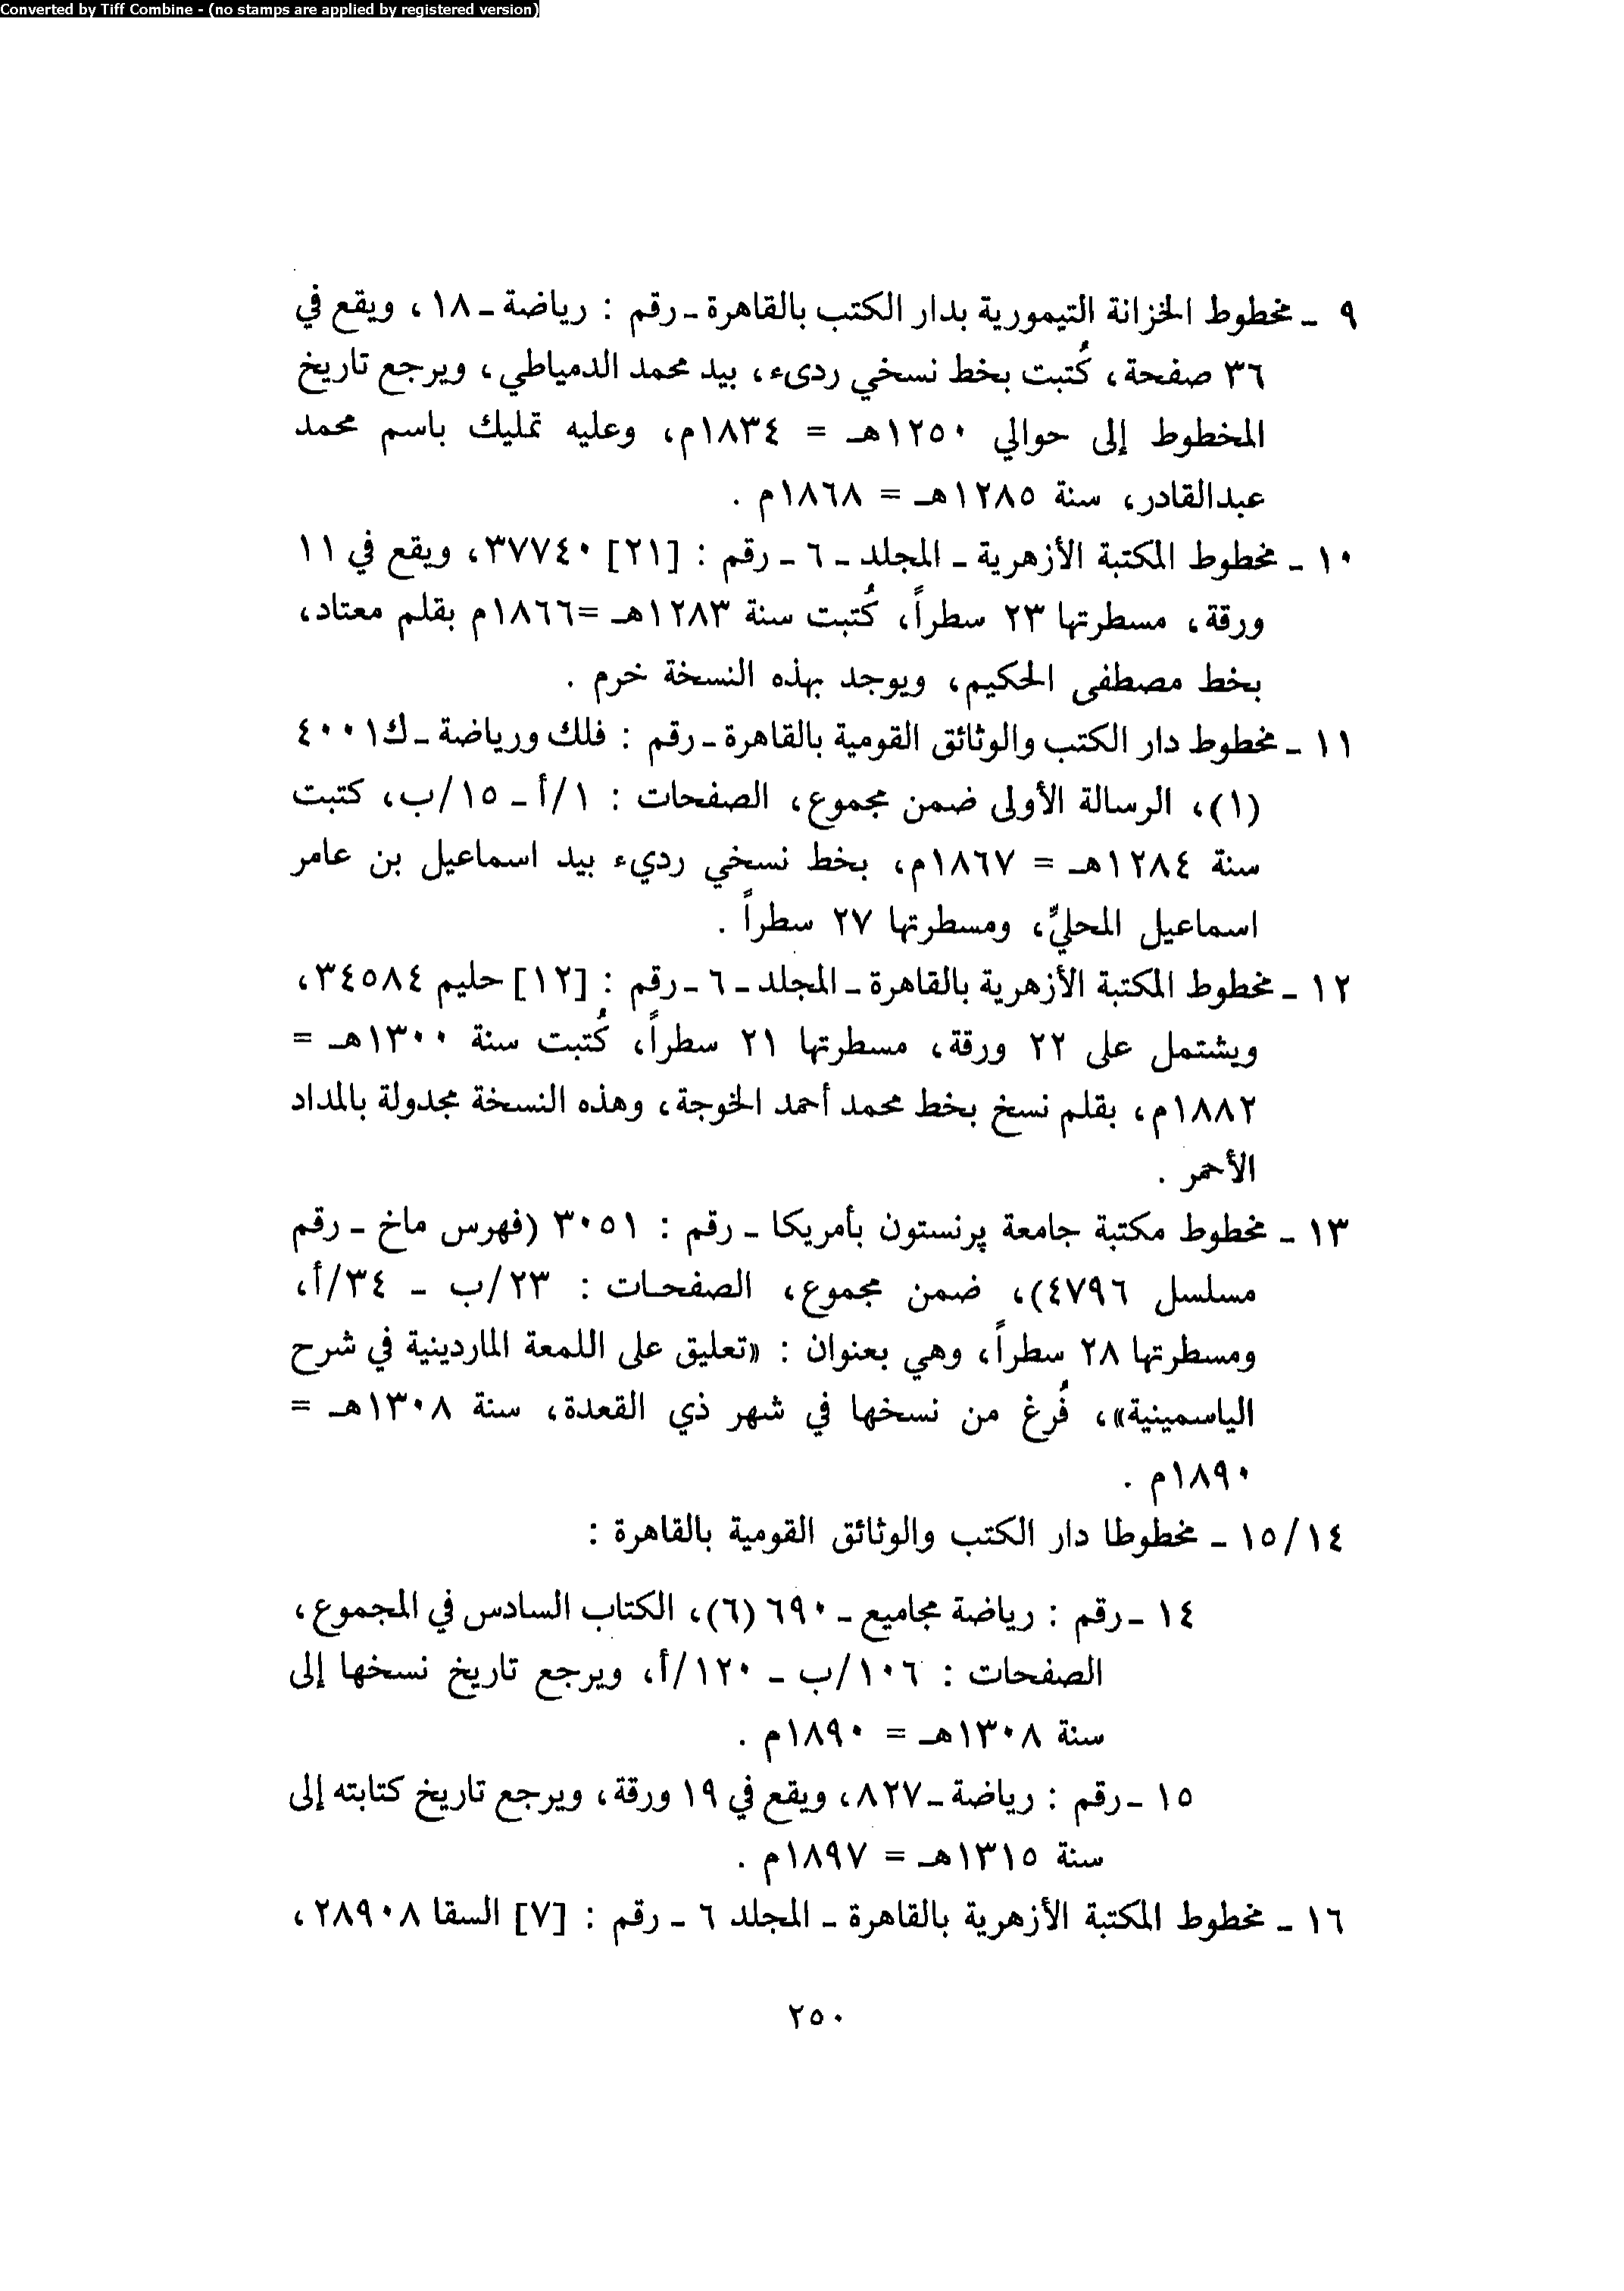 Converted by Tiff Combine - (no stamps are applied by registered version)
٩ ـ مخطوط الخزانة التيمورية بدار الكتب بالقاهرة ـ رقم : رياضة ـ ١٨ ، ويقع في
٣٦ صفحة، كُتبت بخط نسخي ردىء، بيد محمد الدمياطي، ويرجع تاريخ
المخطوط إلى حوالي ١٢٥٠هـ = ١٨٣٤م، وعليه تمليك باسم محمد
عبدالقادر، سنة ١٢٨٥هـ = ١٨٦٨م .
١٠ ـ مخطوط المكتبة الأزهرية ـ المجلد ـ ٦ ـ رقم : [٢١] ٣٧٧٤٠، ويقع في ١١
ورقة، مسطرتها ٢٣ سطراً، كُتبت سنة ١٢٨٣هـ =١٨٦٦م بقلم معتاد،
بخط مصطفى الحكيم، ويوجد بهذه النسخة خرم .
١١ ـ مخطوط دار الكتب والوثائق القومية بالقاهرة ـ رقم : فلك ورياضة ـ ك٤٠٠١
(١)، الرسالة الأولى ضمن مجموع، الصفحات : ١/أ ـ ١٥/ب، كتبت
سنة ١٢٨٤هـ = ١٨٦٧م، بخط نسخي رديء بيد اسماعيل بن عامر
اسماعيل المحليّ، ومسطرتها ٢٧ سطراً .
١٢ ـ مخطوط المكتبة الأزهرية بالقاهرة ـ المجلد ـ ٦ ـ رقم : [١٢] حليم ٣٤٥٨٤،
ويشتمل على ٢٢ ورقة، مسطرتها ٢١ سطراً، كُتبت سنة ١٣٠٠هـ =
١٨٨٢م، بقلم نسخ بخط محمد أحمد الخوجة، وهذه النسخة مجدولة بالمداد
الأحمر .
١٣ ـ مخطوط مكتبة جامعة پرنستون بأمريكا ـ رقم : ٣٠٥١ (فهرس ماخ ـ رقم
مسلسل ٤٧٩٦)، ضمن مجموع، الصفحات : ٢٣/ب ـ ٣٤/أ،
ومسطرتها ٢٨ سطراً، وهي بعنوان : «تعليق على اللمعة الماردينية في شرح
الياسمينية»، فُرغ من نسخها في شهر ذي القعدة، سنة ١٣٠٨هـ =
١٨٩٠م .
١٥/١٤ ـ مخطوطا دار الكتب والوثائق القومية بالقاهرة :
١٤ ـ رقم : رياضة مجاميع ـ ٦٩٠ (٦)، الكتاب السادس في المجموع،
الصفحات : ١٠٦/ب ـ ١٢٠/أ، ويرجع تاريخ نسخها إلى
سنة ١٣٠٨هـ = ١٨٩٠م .
١٥ ـ رقم : رياضة ـ ٨٢٧، ويقع في ١٩ ورقة، ويرجع تاريخ كتابته إلى
سنة ١٣١٥هـ = ١٨٩٧م .
١٦ ـ مخطوط المكتبة الأزهرية بالقاهرة ـ المجلد ٦ ـ رقم : [٧] السقا ٢٨٩٠٨،
٢٥٠